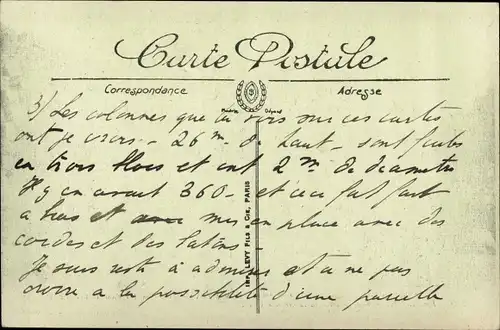 Carte Postale
Correspondance
Adresse
Marque Déposée
3) Les colonnes que tu vois sur ces cartes
ont je crois - 26m de haut - sont faites
en trois blocs et ont 2m de diametre
Il y en avait 360 - et ceci fut fait
a bras et mis en place avec des
cordes et des bâtons -
Je suis resté à admirer et à ne pas
croire a la possibilité d'une pareille
IMP. LEVY FILS & CIE, PARIS